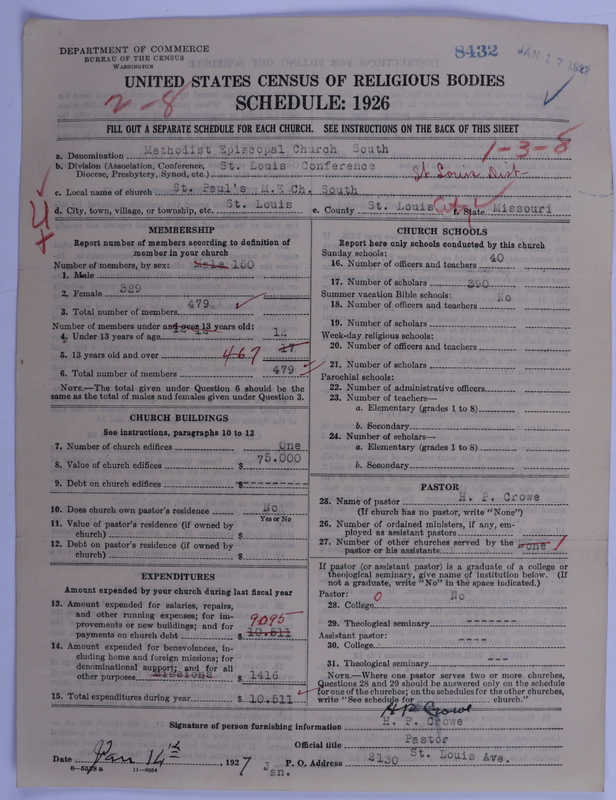 DEPARTMENT OF COMMERCE
BUREAU OF THE CENSUS
WASHINGTON
8432
JAN 17 1927
UNITED STATES CENSUS OF RELIGIOUS BODIES
2-8
SCHEDULE: 1926
FILL OUT A SEPARATE SCHEDULE FOR EACH CHURCH. SEE INSTRUCTIONS ON THE BACK OF THIS SHEET
1-3-8
a. Denomination Methodist Episcopal Church South
b. Division (Association, Conference, Diocese, Presbytery, Synod, etc.) St. Louis Conference
St Louis Dist-
c. Local name of church St. Paul's M.E Ch. South
d. City, town, village, or township, etc. St. Louis e. County St. Louis City f. State Missouri
4
x
MEMBERSHIP
Report number of members according to definition of
member in your church
Number of members, by sex: Male 150
1. Male
2. Female 329
3. Total number of members 479
Number of members under and over 13 years old:
4. Under 13 years of age 12
5. 13 years old and over 467 17
6. Total number of members 479
NOTE.—The total given under Question 6 should be the
same as the total of males and females given under Question 3.
CHURCH BUILDINGS
See instructions, paragraphs 10 to 12
7. Number of church edifices One
8. Value of church edifices $ 75.000
9. Debt on church edifices $ ----------
10. Does church own pastor's residence No
Yes or No
11. Value of pastor's residence (if owned by
church) $
12. Debt on pastor's residence (if owned by
church) $
EXPENDITURES
Amount expended by your church during last fiscal year
13. Amount expended for salaries, repairs,
and other running expenses; for im-
provements or new buildings; and for
payments on church debt $ 9095 10.511
14. Amount expended for benevolences, in-
cluding home and foreign missions; for
denominational support; and for all
other purposes Missions $ 1416
15. Total expenditures during year $ 10.511
CHURCH SCHOOLS
Report here only schools conducted by this church
Sunday schools:
16. Number of officers and teachers 40
17. Number of scholars 390
Summer vacation Bible schools: No
18. Number of officers and teachers
19. Number of scholars
Week-day religious schools:
20. Number of officers and teachers
21. Number of scholars
Parochial schools:
22. Number of administrative officers
23. Number of teachers—
a. Elementary (grades 1 to 8)
b. Secondary
24. Number of scholars—
a. Elementary (grades 1 to 8)
b. Secondary
PASTOR
25. Name of pastor H. P. Crowe
(If church has no pastor, write "None")
26. Number of ordained ministers, if any, em-
ployed as assistant pastors
27. Number of other churches served by the
pastor or his assistants None
If pastor (or assistant pastor) is a graduate of a college or
theological seminary, give name of institution below. (If
not a graduate, write "No" in the space indicated.)
Pastor: 0 No
28. College
29. Theological seminary -------
Assistant pastor:
30. College ----
31. Theological seminary ---
NOTE.—Where one pastor serves two or more churches,
Questions 28 and 29 should be answered only on the schedule
for one of the churches; on the schedules for the other churches,
write "See schedule for church."
H P Crowe
Signature of person furnishing information H. P. Crowe
Official title Pastor
Date Jan 14th, 1927 Jan. P. O. Address 2130 St. Louis Ave.
8-5518 a 11-9084